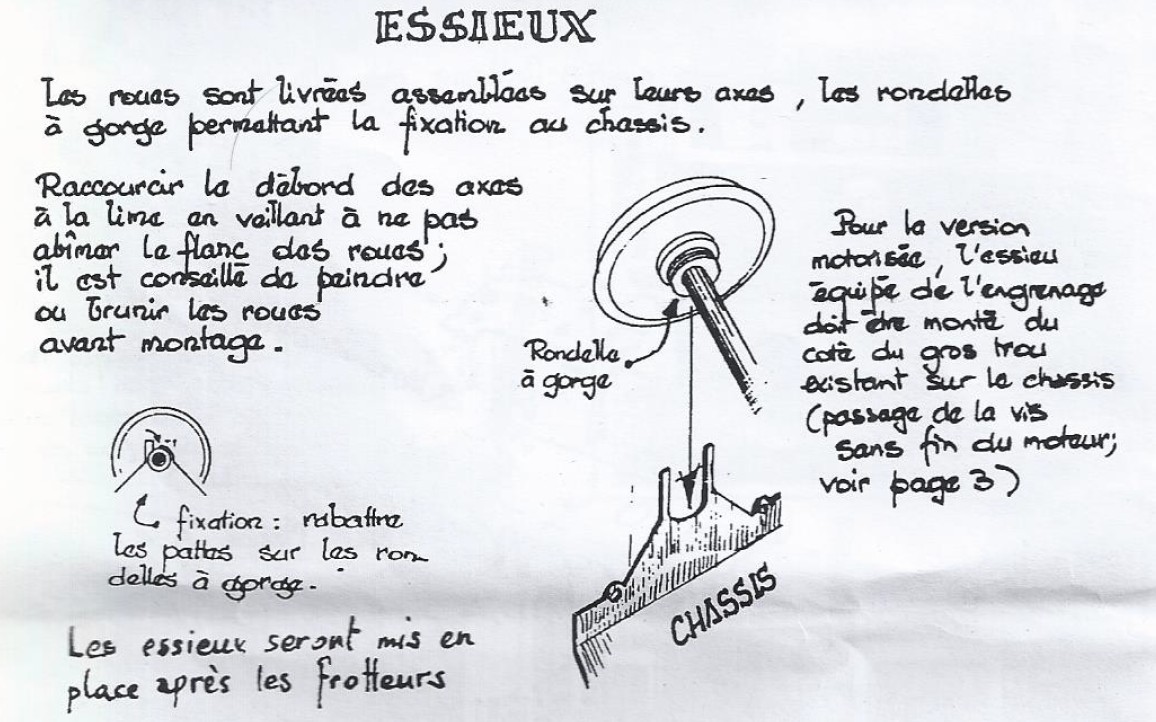 ESSIEUX
Les roues sont livrées assemblées sur leurs axes, les rondelles
à gorge permettant la fixation au chassis.
Raccourcir le débord des axes
à la lime en veillant à ne pas
abîmer le flanc des roues;
il est conseillé de peindre
ou brunir les roues
avant montage.
Rondelle
à gorge
Pour la version
motorisée, l'essieu
équipé de l'engrenage
doit être monté du
coté du gros trou
existant sur le chassis
(passage de la vis
sans fin du moteur;
voir page 3)
fixation : rabattre
les pattes sur les ron-
delles à gorge.
CHASSIS
Les essieux seront mis en
place après les frotteurs